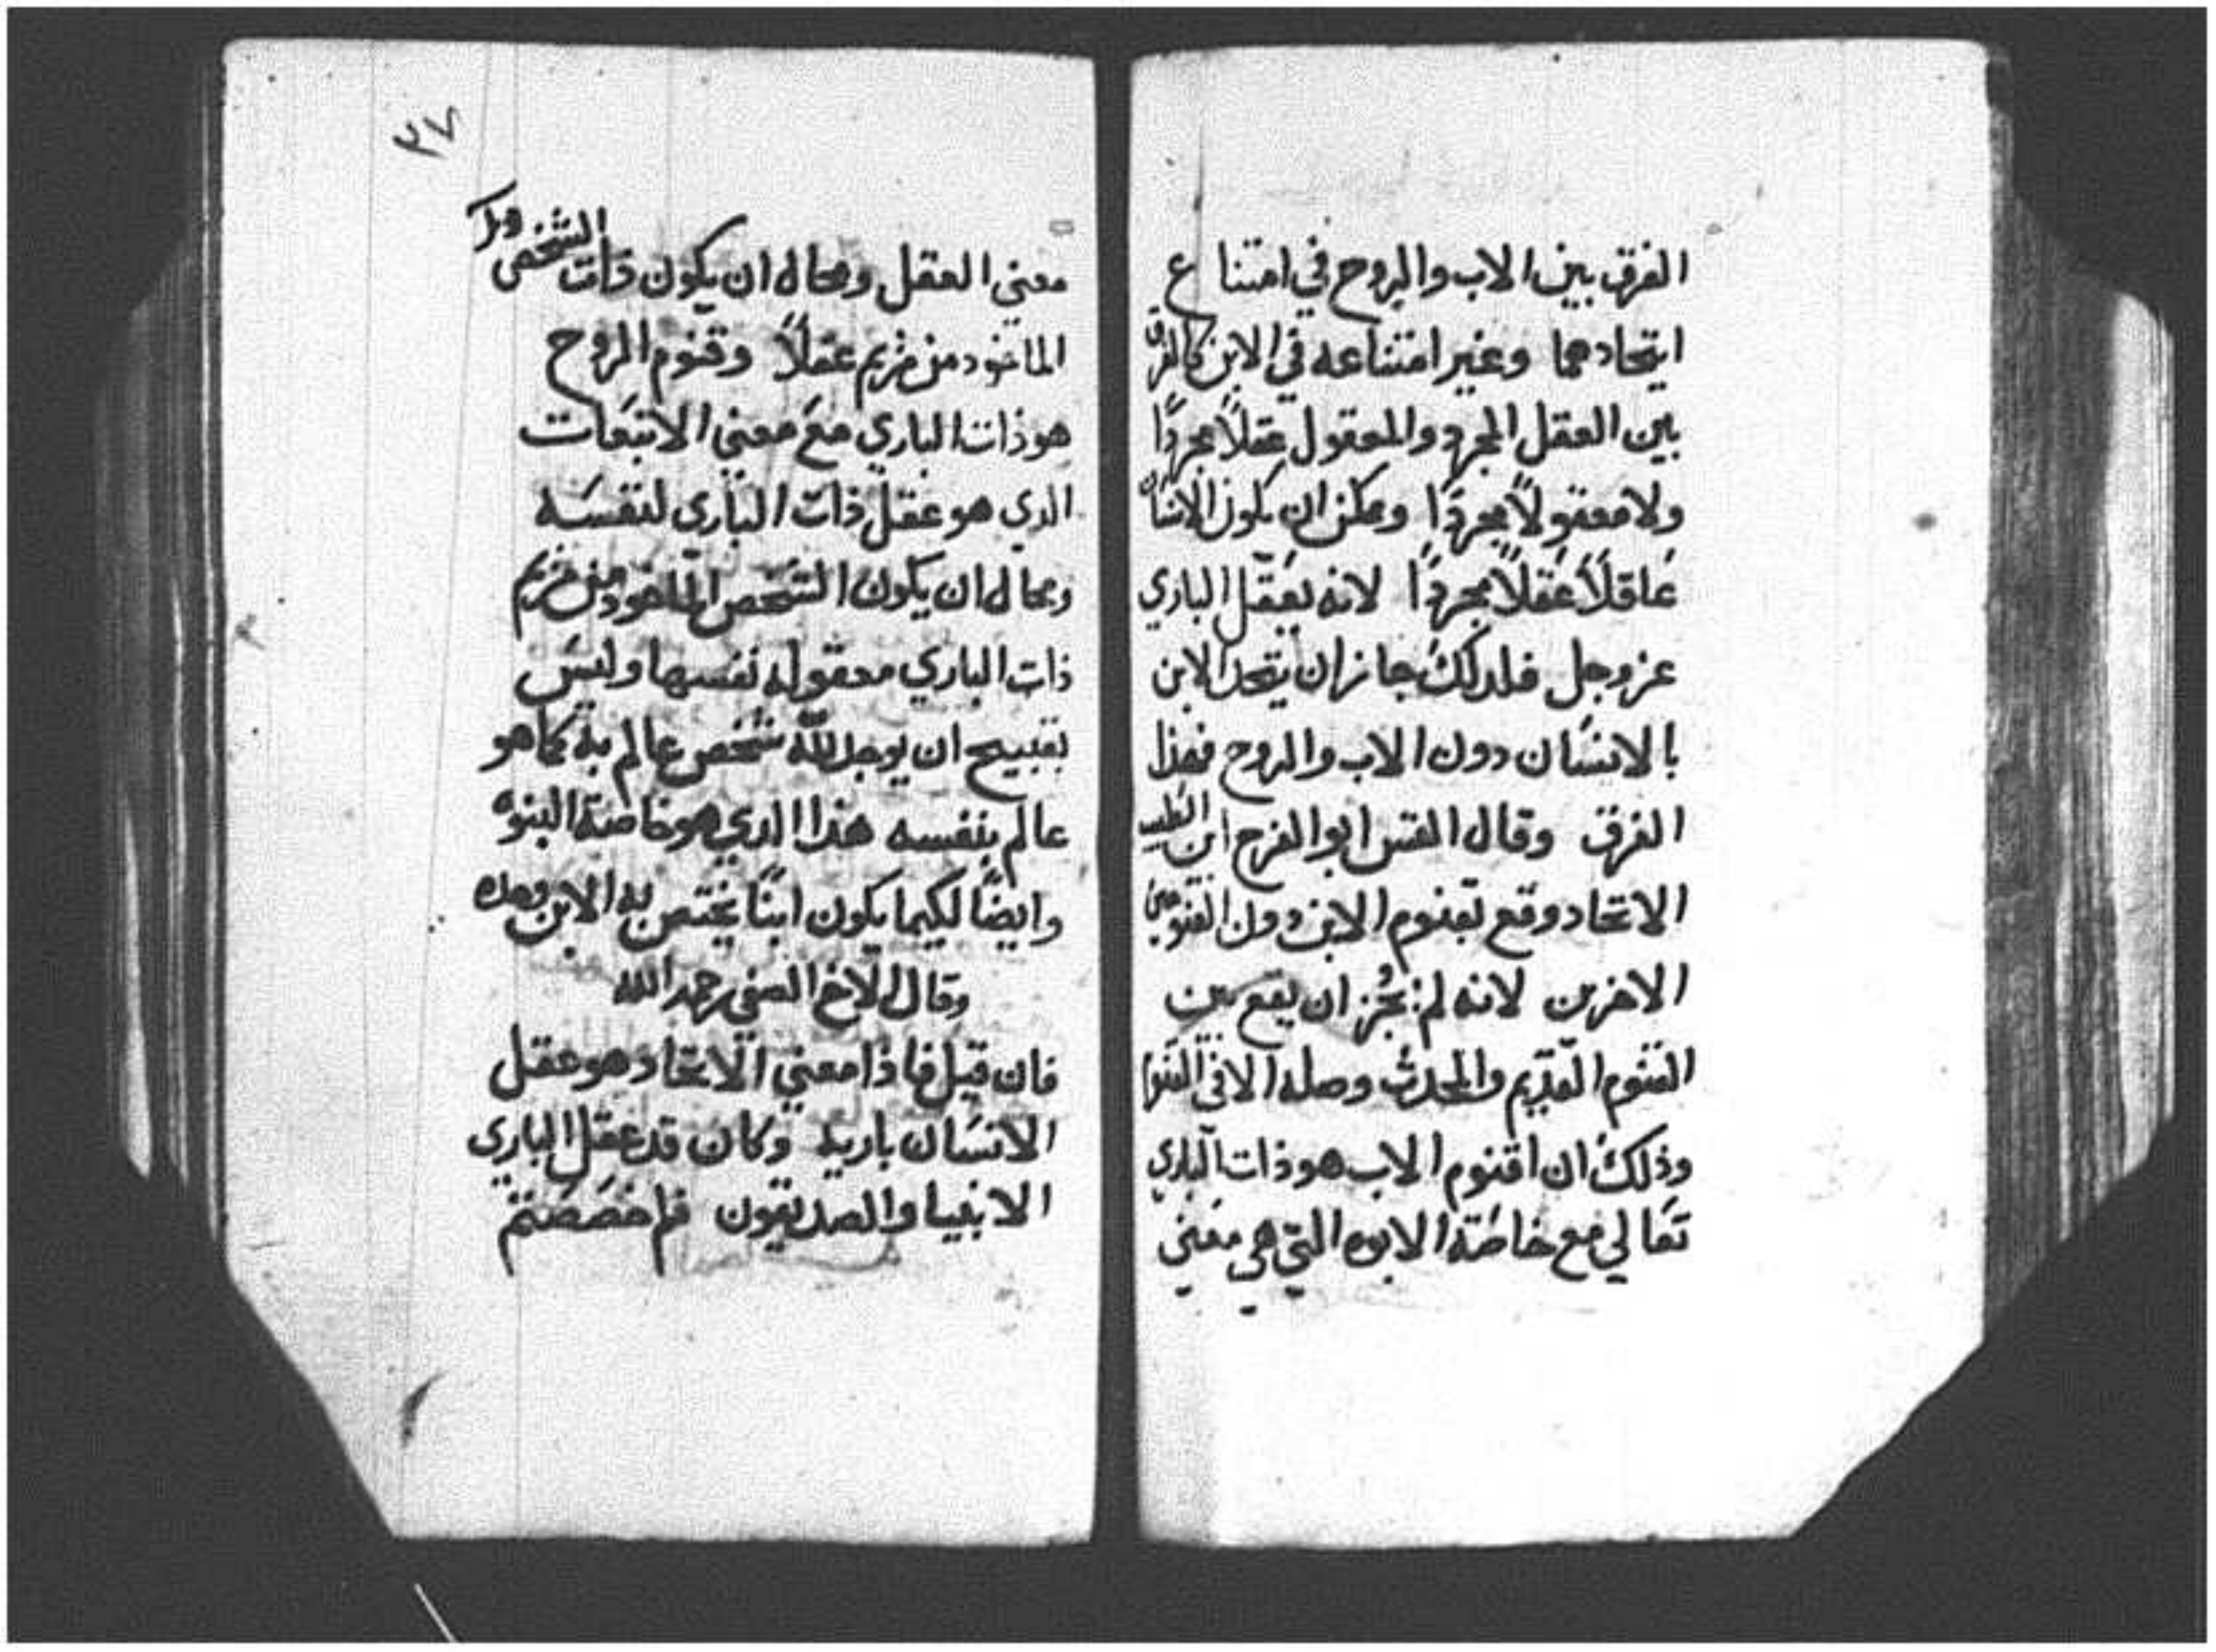 الفرق بين الاب والروح في امتنا ع
اتحادهما وغير امتناعه في الابن كالفرق
بين العقل المجرد والمعقول عقلاً مجردًا
ولا معقولاً مجردًا ويمكن ان يكون الانسان
عاقلاً عقلاً مجردًا لانه يعقل الباري
عز وجل فلدلك جاز ان يتحد الابن
بالانسان دون الاب والروح فهذا
الفرق وقال القس ابو الفرج ابن الطيب
الاتحاد وقع بقنوم الابن دون القنومين
الاخرين لانه لم يجُز ان يقع بين
القنوم القديم والمحدث وصله الا في القنوم
وذلك ان اقنوم الاب هو ذات الباري
تعالي مع خاصة الابوه التي هي معني
٢٧
معني العقل ومحال ان يكون ذات الشخص
الماخود من مريم عقلاً وقنوم الروح
هو ذات الباري مع معني الانبعات
الدي هو عقل ذات الباري لنفسه
ومحال ان يكون الشخص الماخود من مريم
ذات الباري معقوله نفسها وليس
بقبيح ان يوجد لله شخص عالم به كما هو
عالم بنفسه هذا الدي هو خاصة البنوه
وايضًا لكيما يكون ابنًا يختص به الابن وحده
وقال الاخ الصفي رحمه الله
فان قيل فاذا معني الاتحاد هو عقل
الانسان باريه وكان قد عقل الباري
الانبيا والصديقون فلم خصصتم